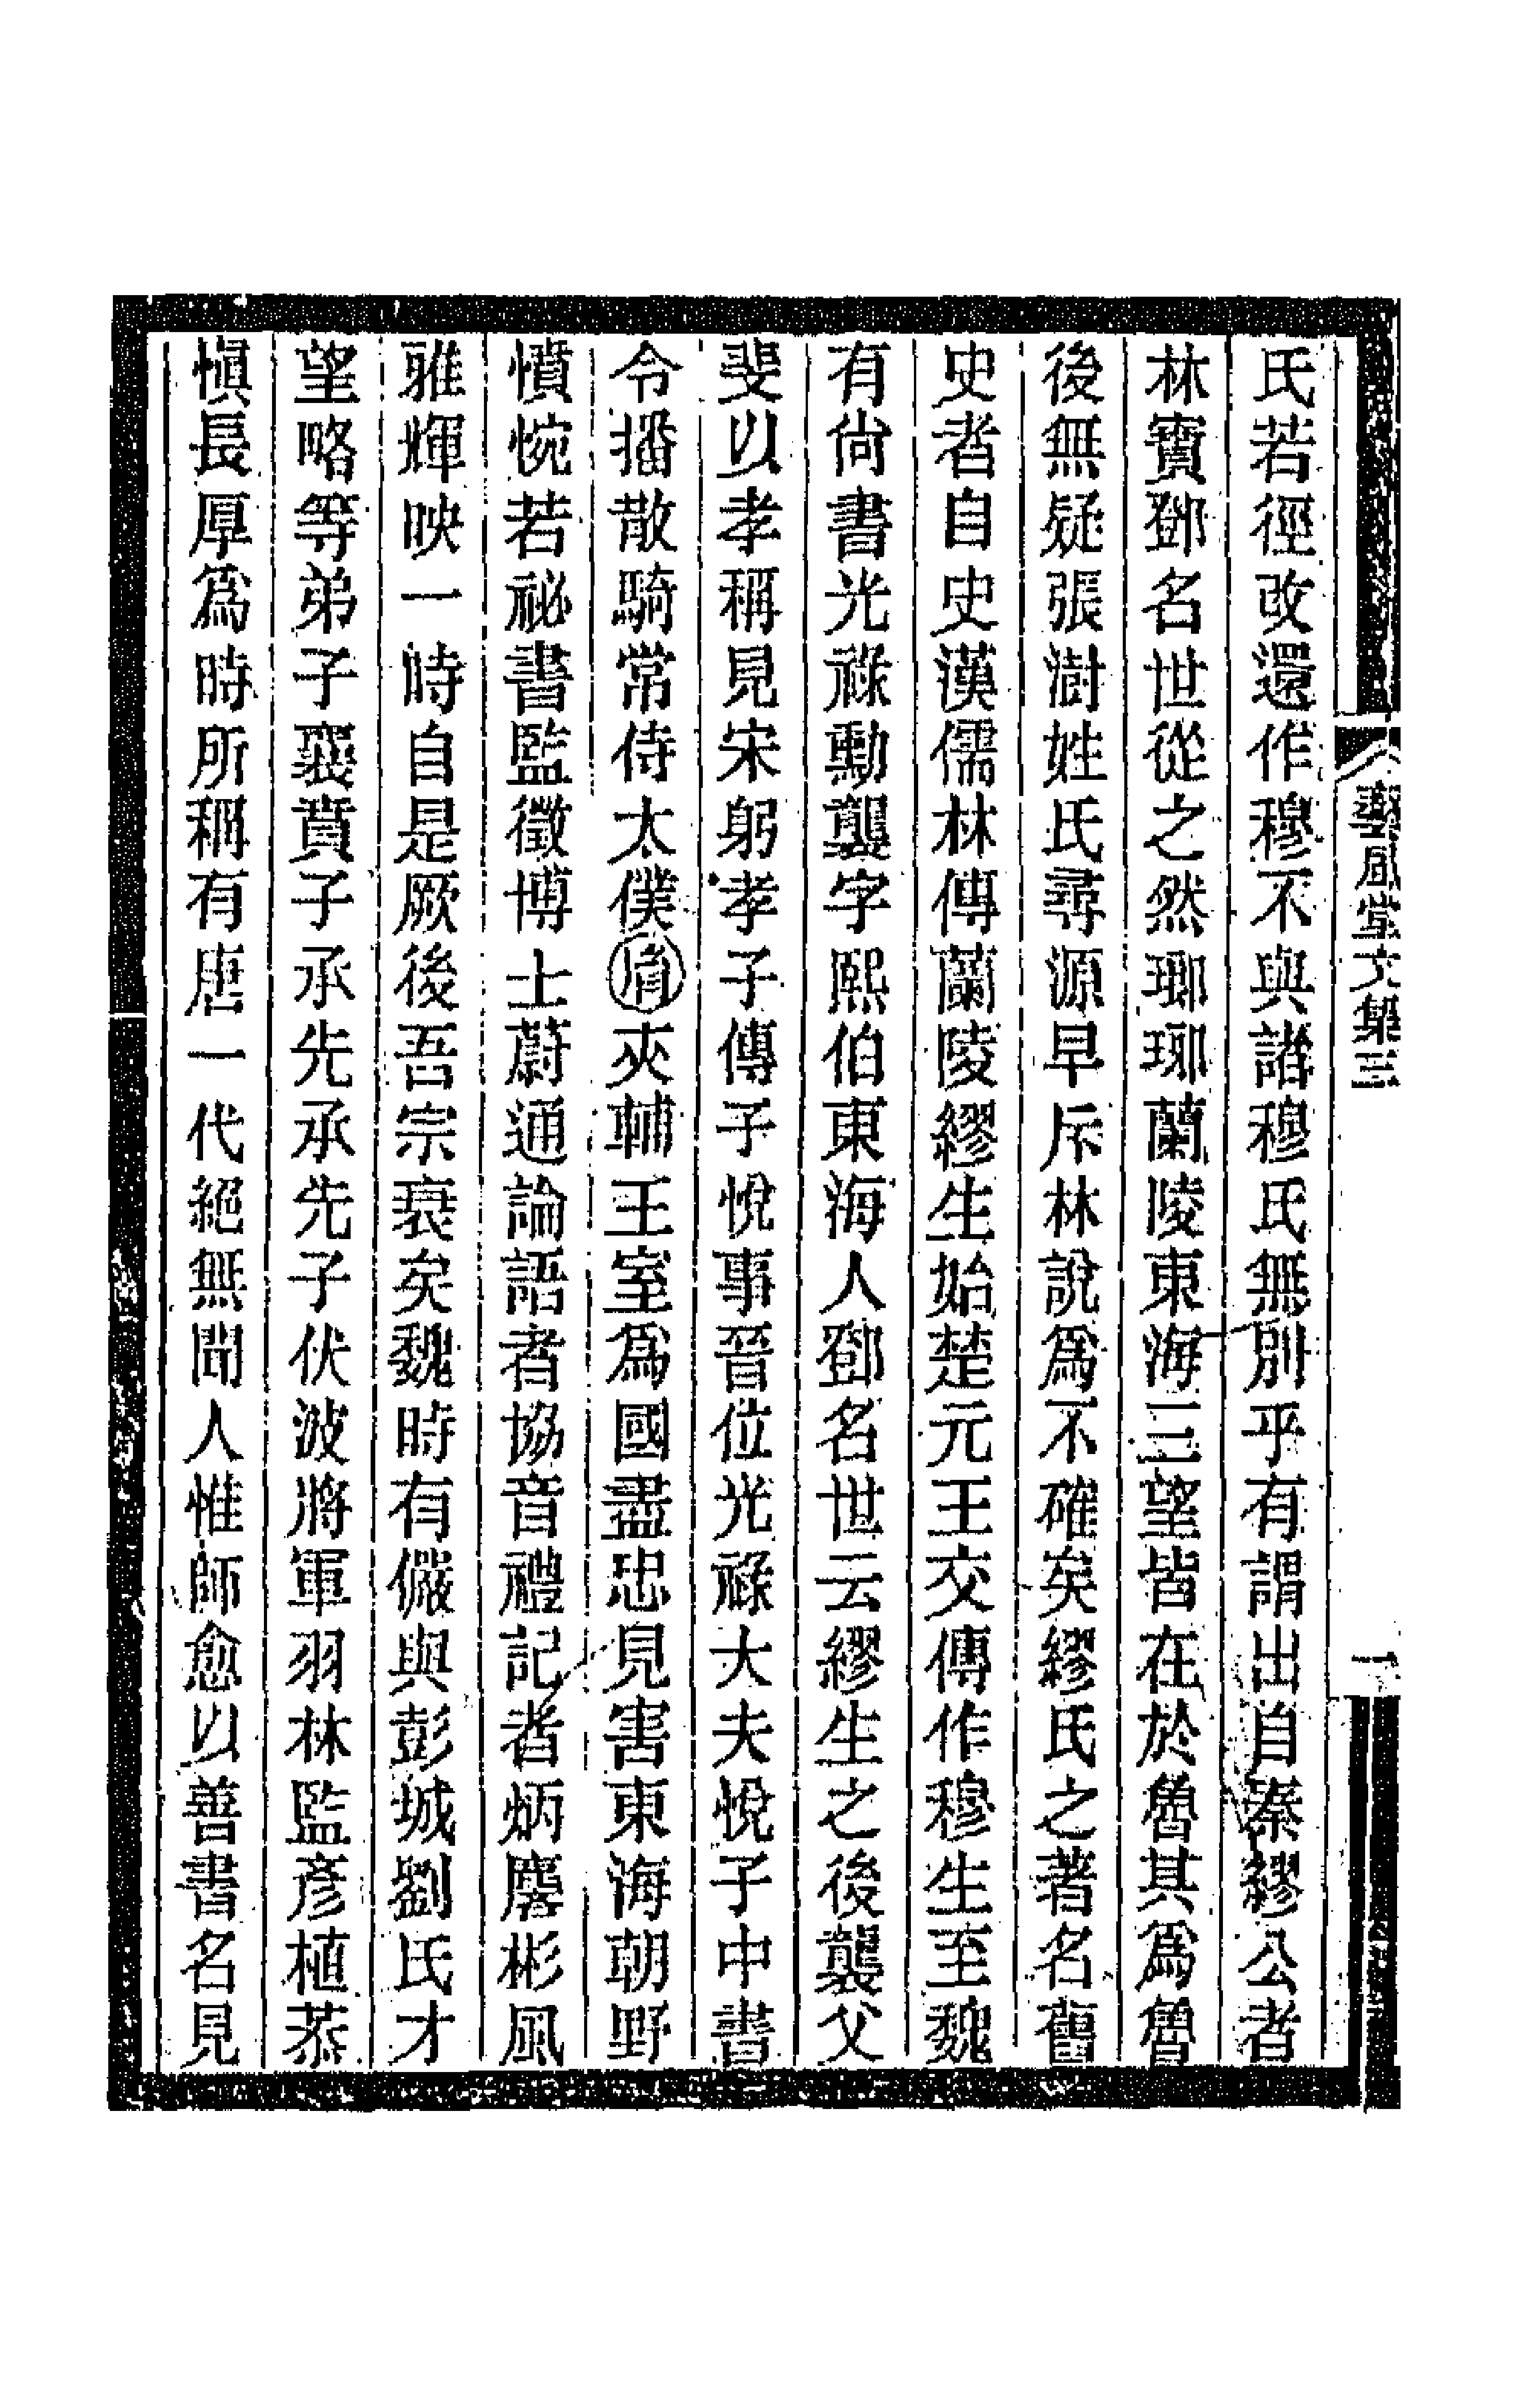 藝風堂文集三
一
氏若徑改還作穆不與諸穆氏無別乎有謂出自秦繆公者
林寶鄧名世從之然瑯琊蘭陵東海三望皆在於魯其爲魯
後無疑張澍姓氏尋源早斥林說爲不確矣繆氏之著名舊
史者自史漢儒林傳蘭陵繆生始楚元王交傳作穆生至魏
有尙書光祿勳襲字熙伯東海人鄧名世云繆生之後襲父
斐以孝稱見宋躬孝子傳子悅事晉位光祿大夫悅子中書
令播散騎常侍太僕胤夾輔王室爲國盡忠見害東海朝野
憤惋若祕書監徵博士蔚通論語者協音禮記者炳麐彬風
雅輝映一時自是厥後吾宗衰矣魏時有儼與彭城劉氏才
望略等弟子襄賁子承先承先子伏波將軍羽林監彥植恭
愼長厚爲時所稱有唐一代絕無聞人惟師愈以善書名見